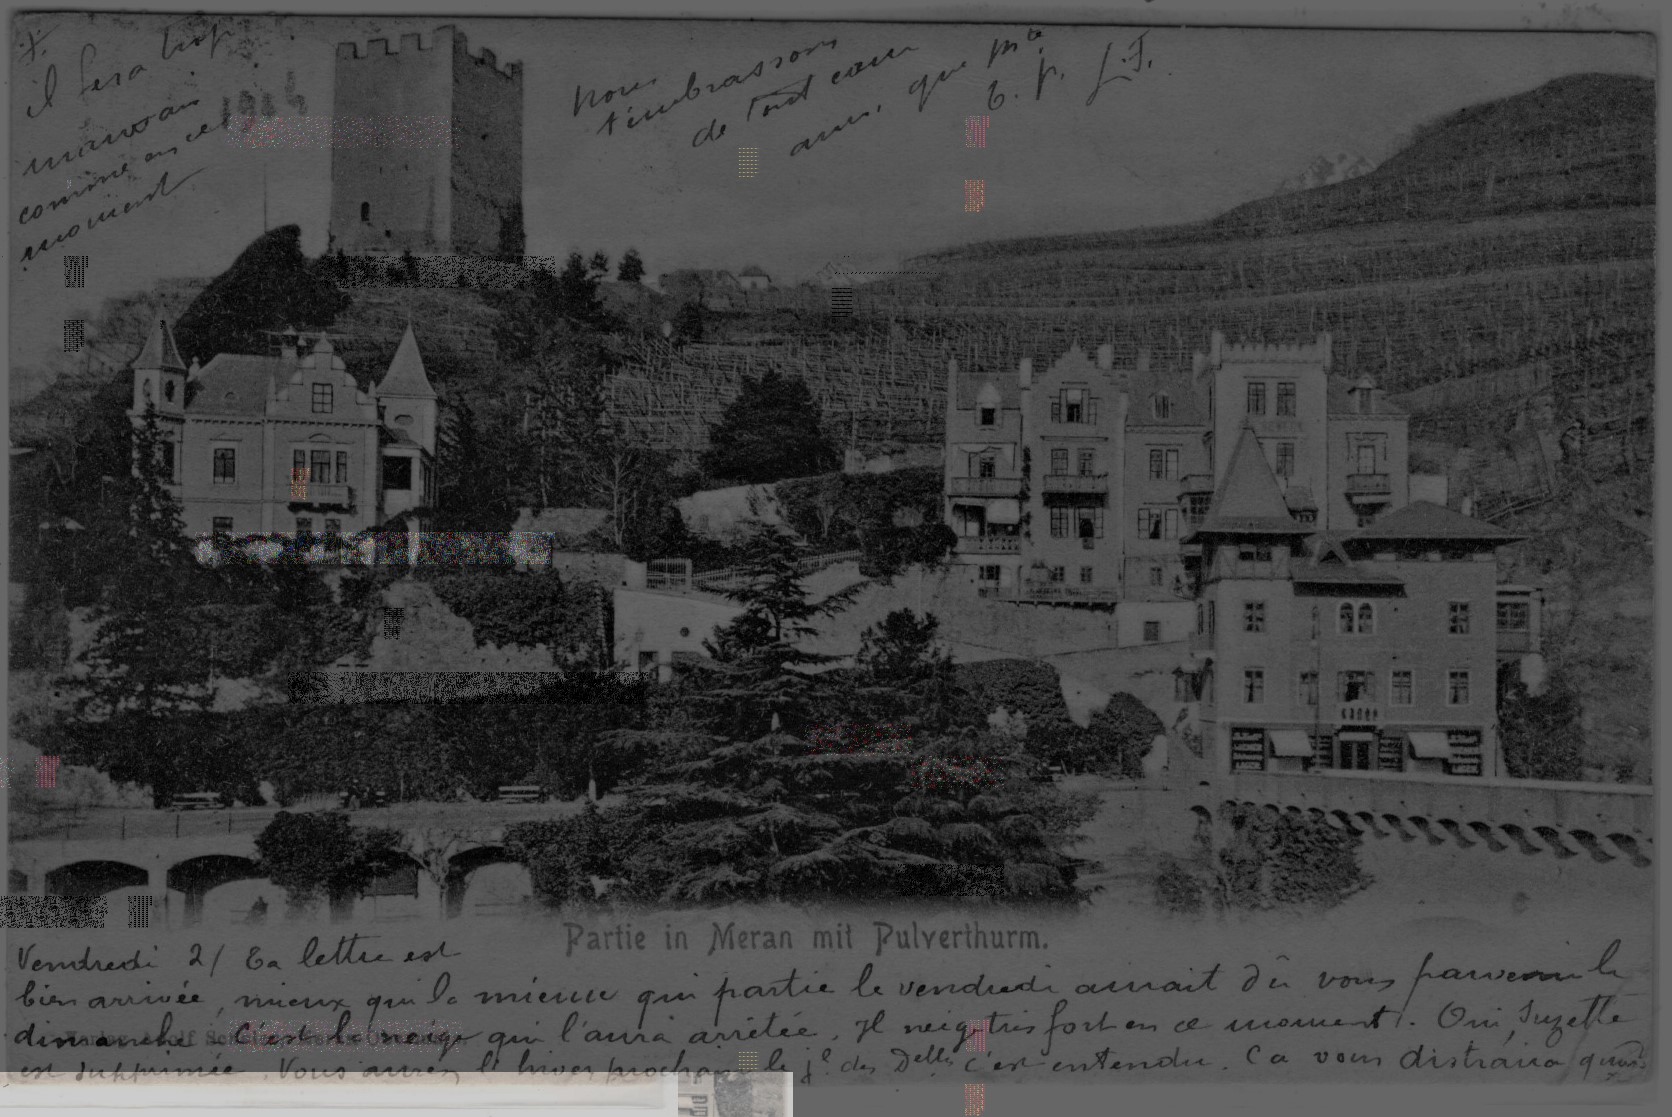 +.
il fera trop
mauvais
comme en ce
moment
1915
nous
t'embrassons
de tout coeur
ainsi que
Partie in Meran mit Pulverthurm.
Vendredi 2/ Ta lettre est
bien arrivée, mieux que la mienne qui partie le vendredi aurait dû vous parvenir le
dimanche. C'est la neige qui l'aura arrêtée. Il neige très fort en ce moment. Oui, Suzette
est supprimée. Vous aurez l'hiver prochain le des Delles c'est entendu. Ca vous distraira